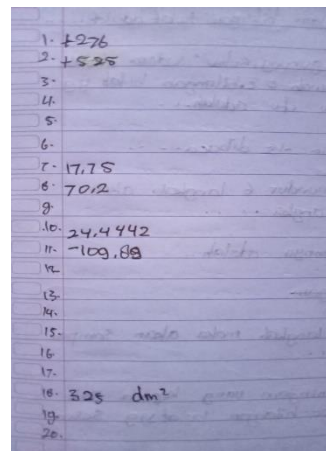 1. +276
2. +525
3.
4.
5.
6.
7. 17,75
8. 70,2
9.
10. 24,4442
11. -109,89
12.
13.
14.
15.
16.
17.
18. 325 dm²
19.
20.